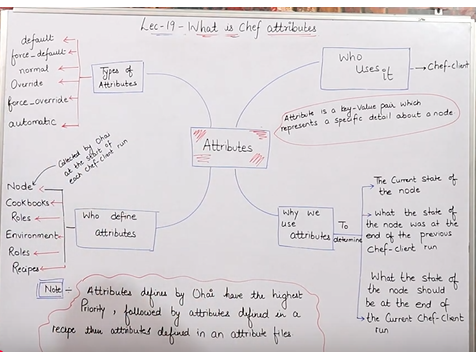 Lec-19 - What is Chef attributes
default
force_default
normal
Override
force_override
automatic
Types of
Attributes
Who
Uses it
Chef-client
Attribute is a key-Value pair which
represents a specific detail about a node
Attributes
Collected by Ohai
at the start of
each chef-client
run
Node
Cookbooks
Roles
Environment
Roles
Recipes
Who define
attributes
Why we
use
attributes
To
determine
The Current state of
the node
What the state of
the node was at the
end of the previous
Chef-client run
What the state of
the node should
be at the end of
the Current Chef-client
run
Note -
Attributes defines by Ohai have the highest
Priority, followed by attributes defined in a
recipe then attributes defined in an attribute files.